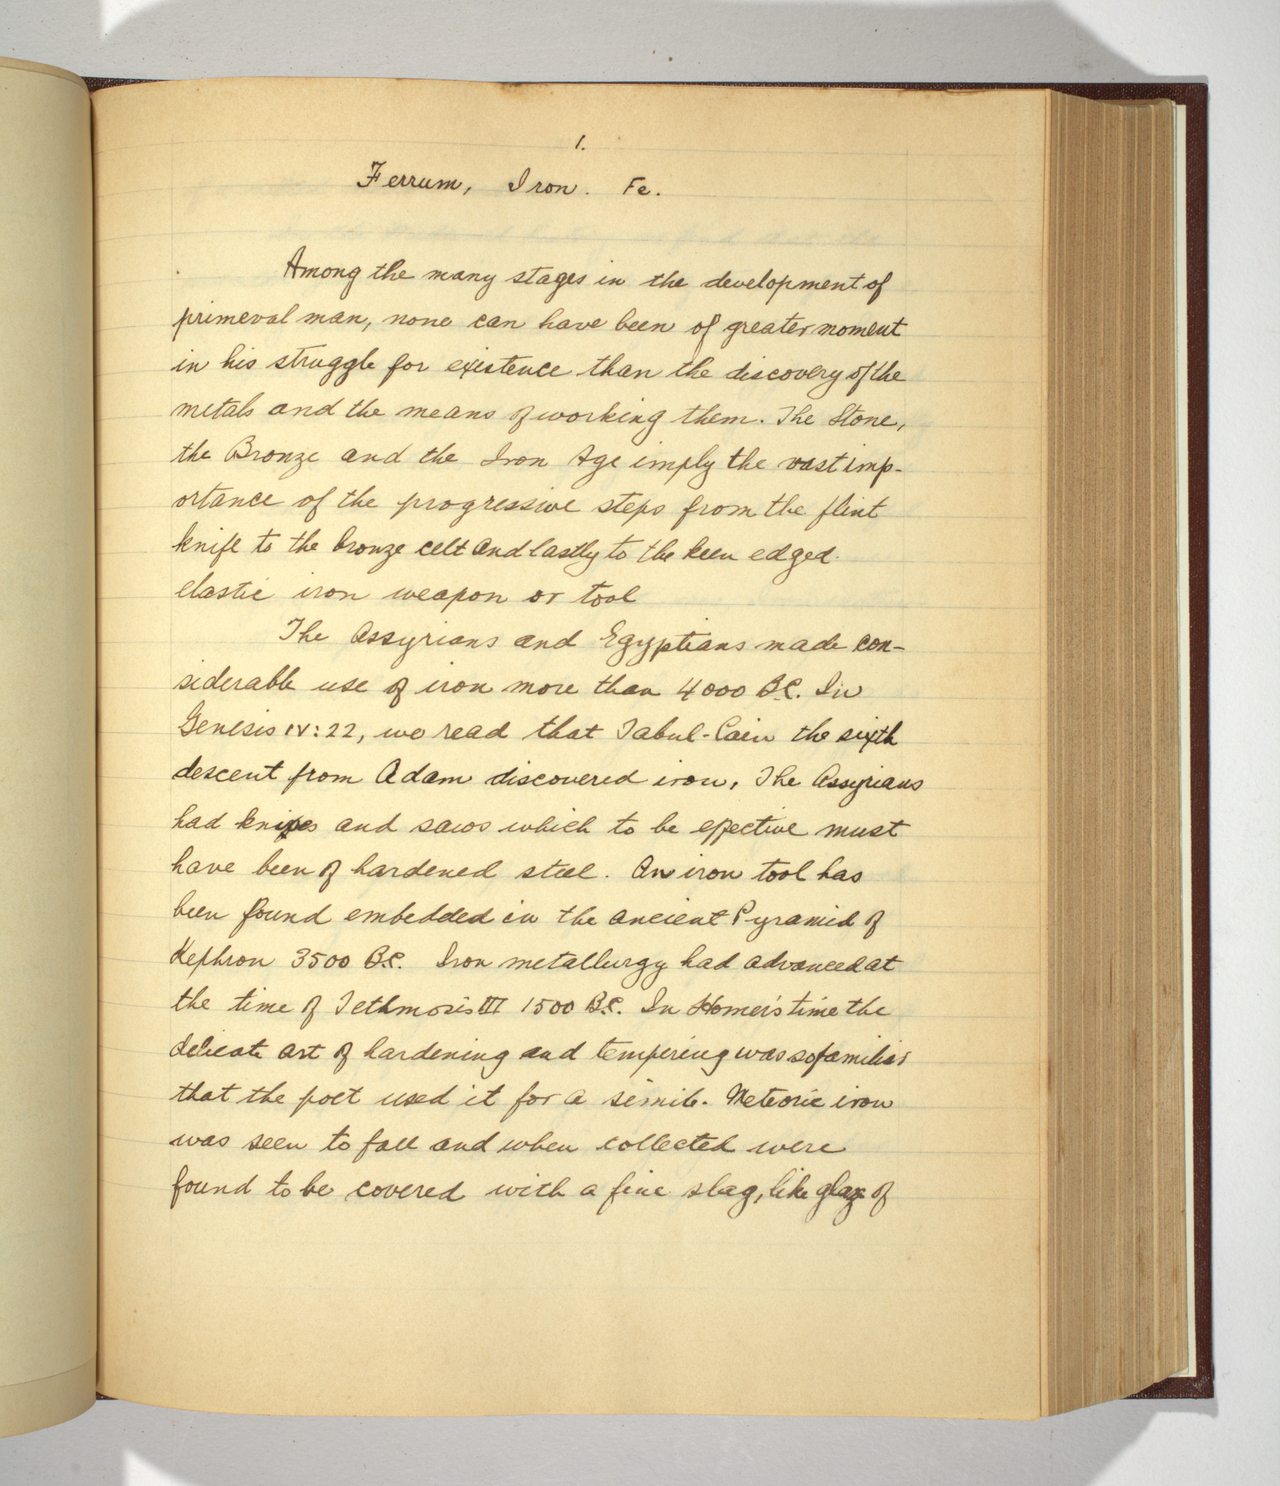 1.
Ferrum, Iron. Fe.
Among the many stages in the development of
primeval man, none can have been of greater moment
in his struggle for existence than the discovery of the
metals and the means of working them. The Stone,
the Bronze and the Iron Age imply the vast imp-
ortance of the progressive steps from the flint
knife to the bronze celt and lastly to the keen edged
elastic iron weapon or tool
The Assyrians and Egyptians made con-
siderable use of iron more than 4000 B.C. In
Genesis IV:22, we read that Tabul-Cain the sixth
descent from Adam discovered iron. The Assyrians
had knives and saws which to be effective must
have been of hardened steel. An iron tool has
been found embedded in the ancient Pyramid of
Kephron 3500 B.C. Iron metallurgy had advanced at
the time of Tethmosis III 1500 B.C. In Homer's time the
delicate art of hardening and tempering was so familiar
that the poet used it for a simile. Meteoric iron
was seen to fall and when collected were
found to be covered with a fine slag, like glaze of